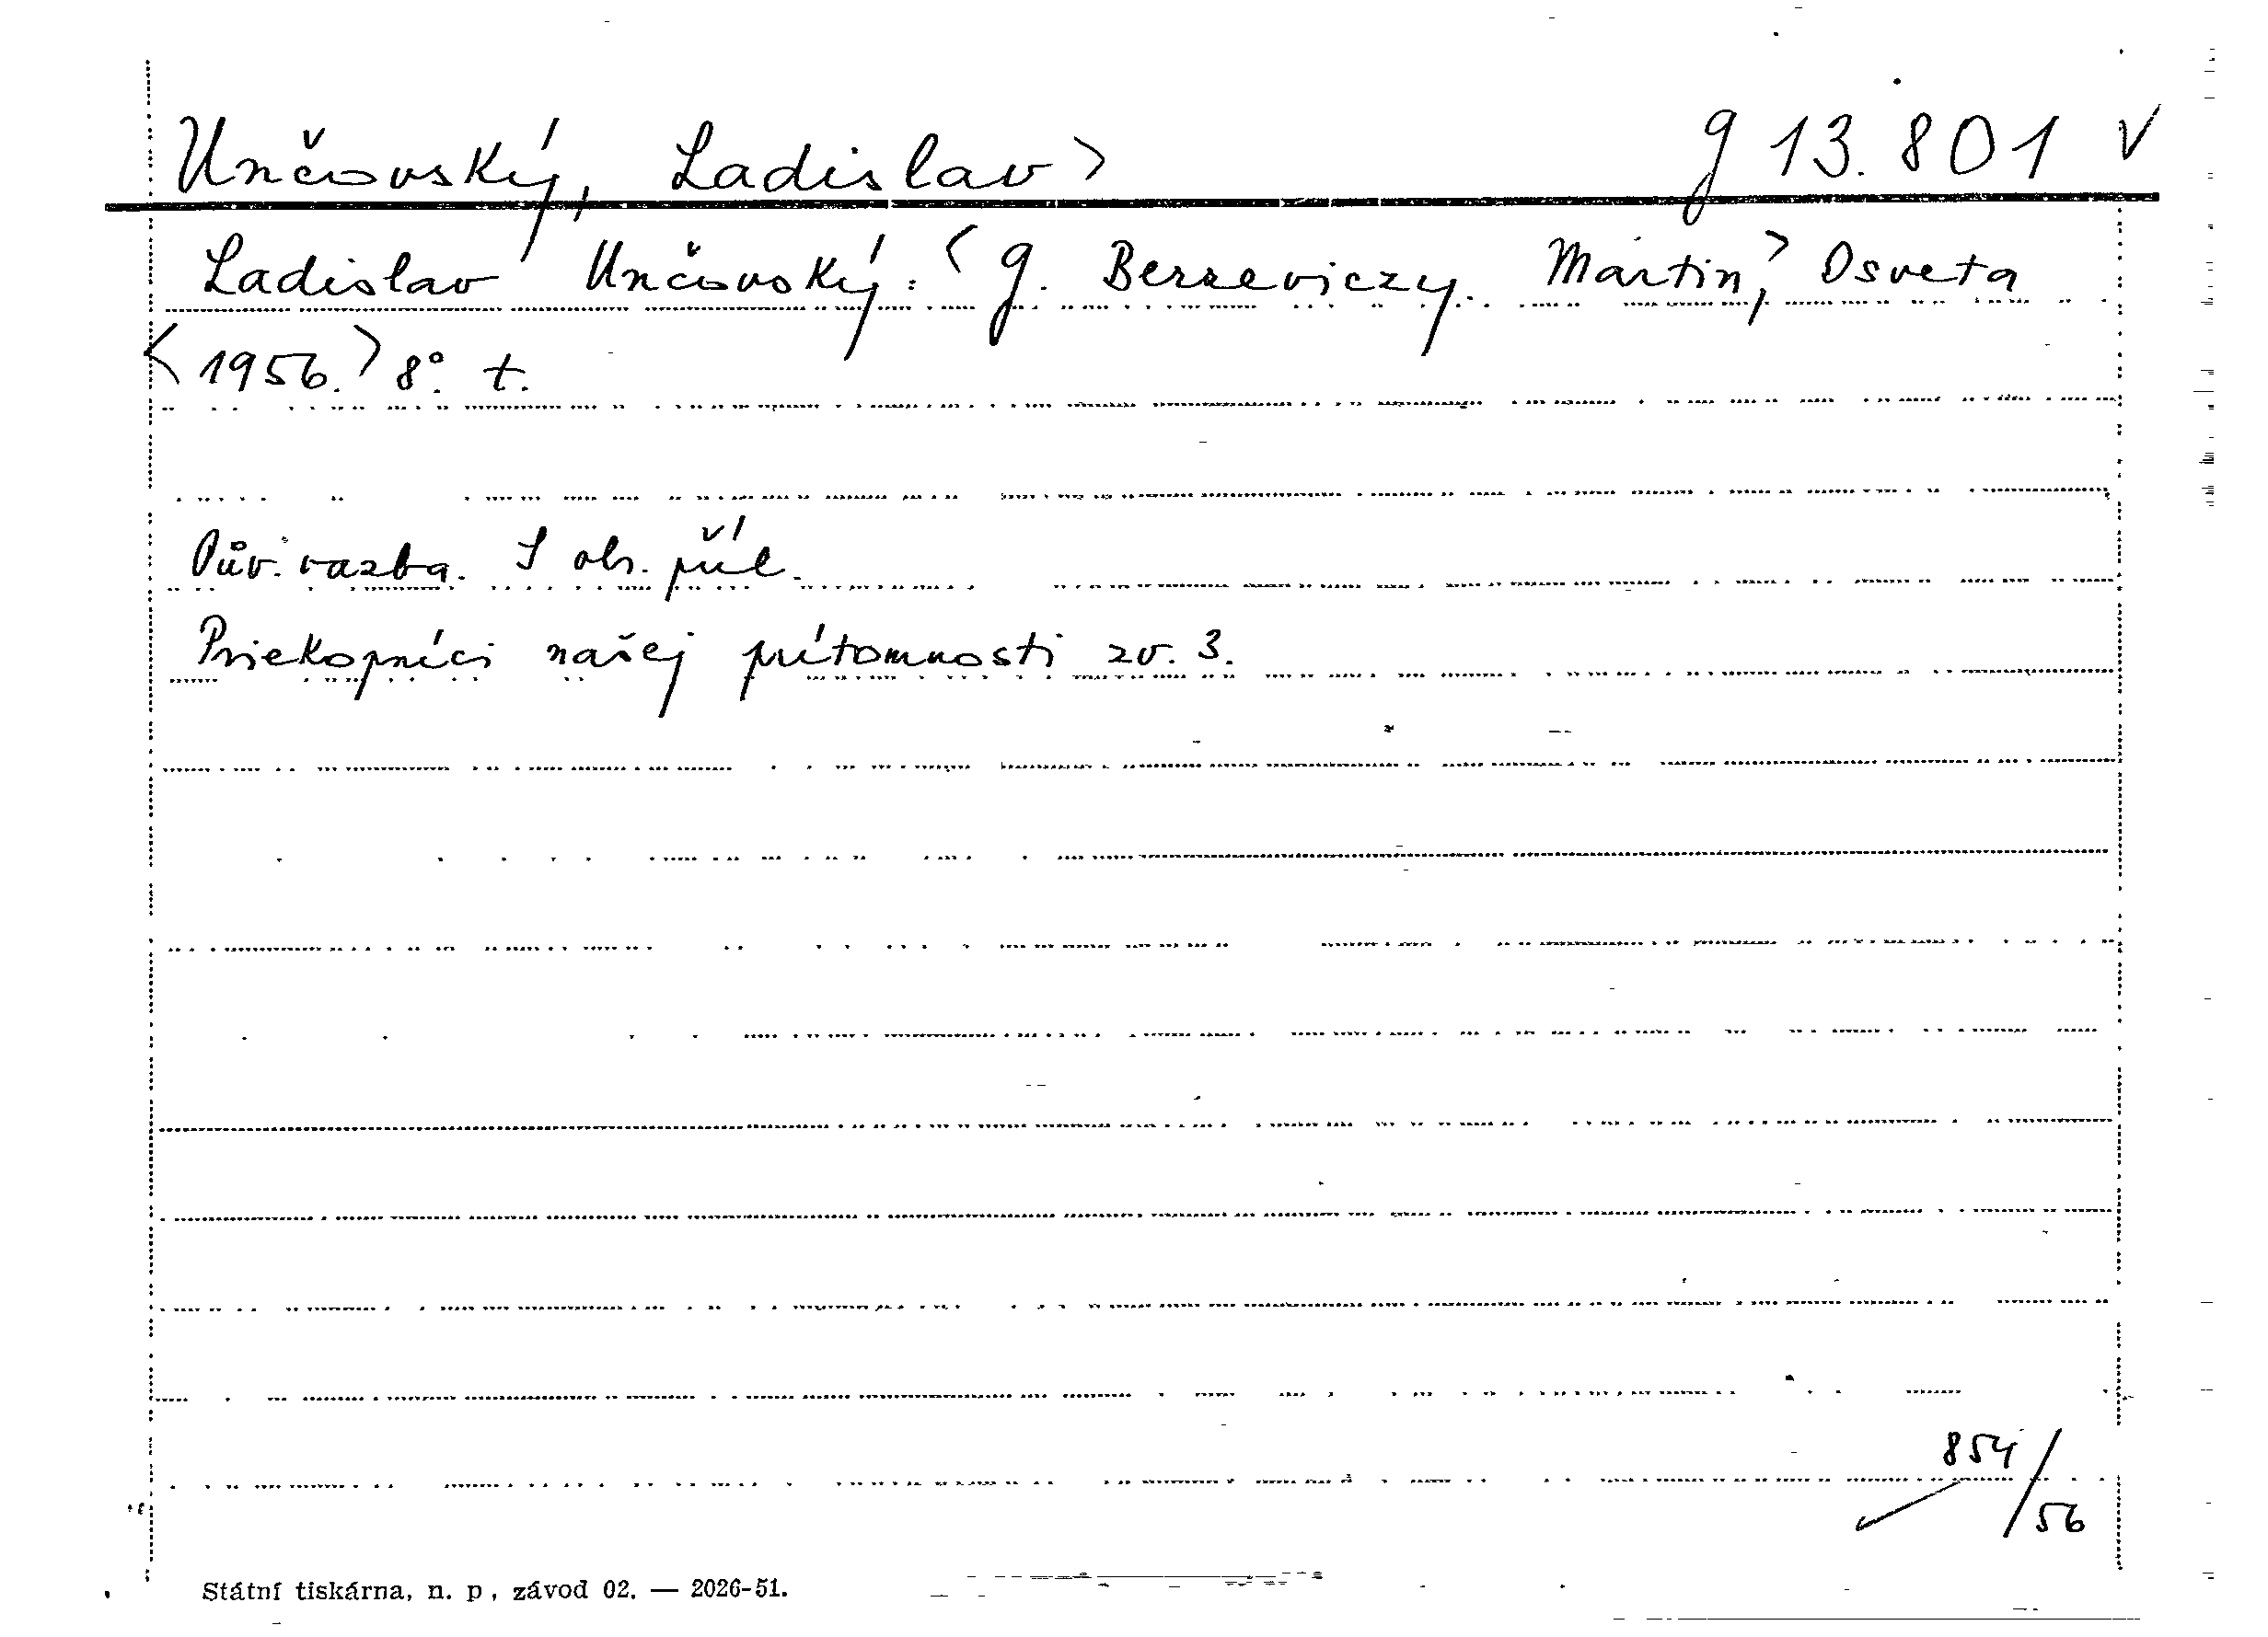 Unčovský, Ladislav> g 13.801 v
Ladislav Unčovský: <G. Berzeviczy. Martin,> Osveta
<1956.> 8°. t.
Pův. vazba. S obr. příl.
Priekopníci našej prítomnosti zv. 3.
854/56
Státní tiskárna, n. p., závod 02. — 2026-51.